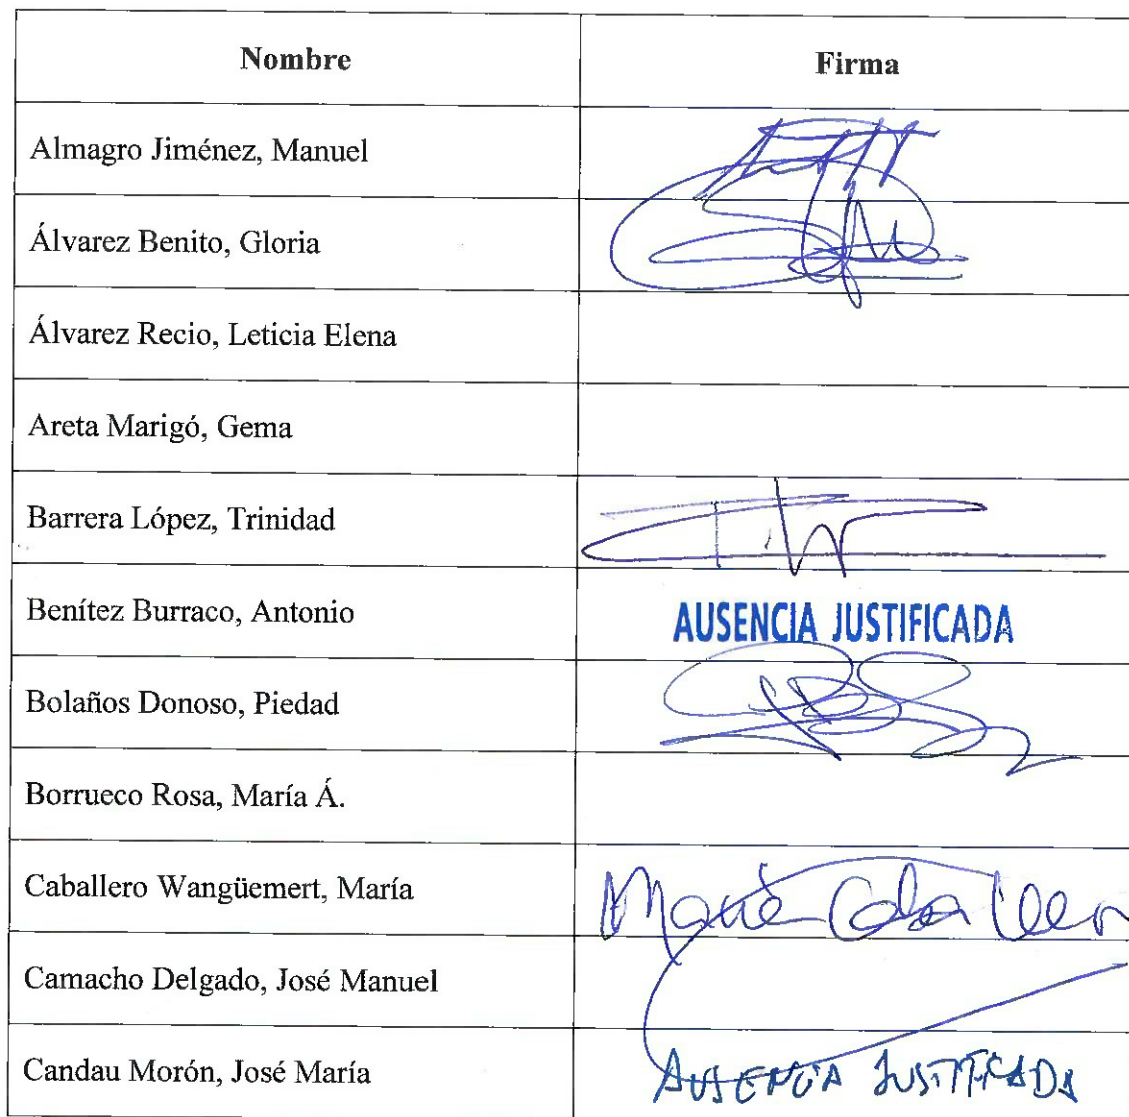 Nombre Firma
Almagro Jiménez, Manuel
Álvarez Benito, Gloria
Álvarez Recio, Leticia Elena
Areta Marigó, Gema
Barrera López, Trinidad
Benítez Burraco, Antonio AUSENCIA JUSTIFICADA
Bolaños Donoso, Piedad
Borrueco Rosa, María Á.
Caballero Wangüemert, María María Caballero
Camacho Delgado, José Manuel
Candau Morón, José María AUSENCIA JUSTIFICADA